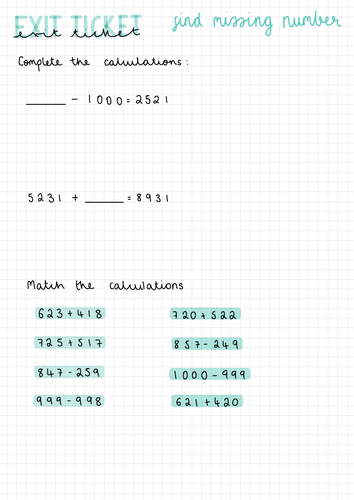 EXIT TICKET
exit ticket
find missing number
Complete the calculations:
______ - 1000 = 2521
5231 + ______ = 8931
Match the calculations
623 + 418
720 + 522
725 + 517
857 - 249
847 - 259
1000 - 999
999 - 998
621 + 420